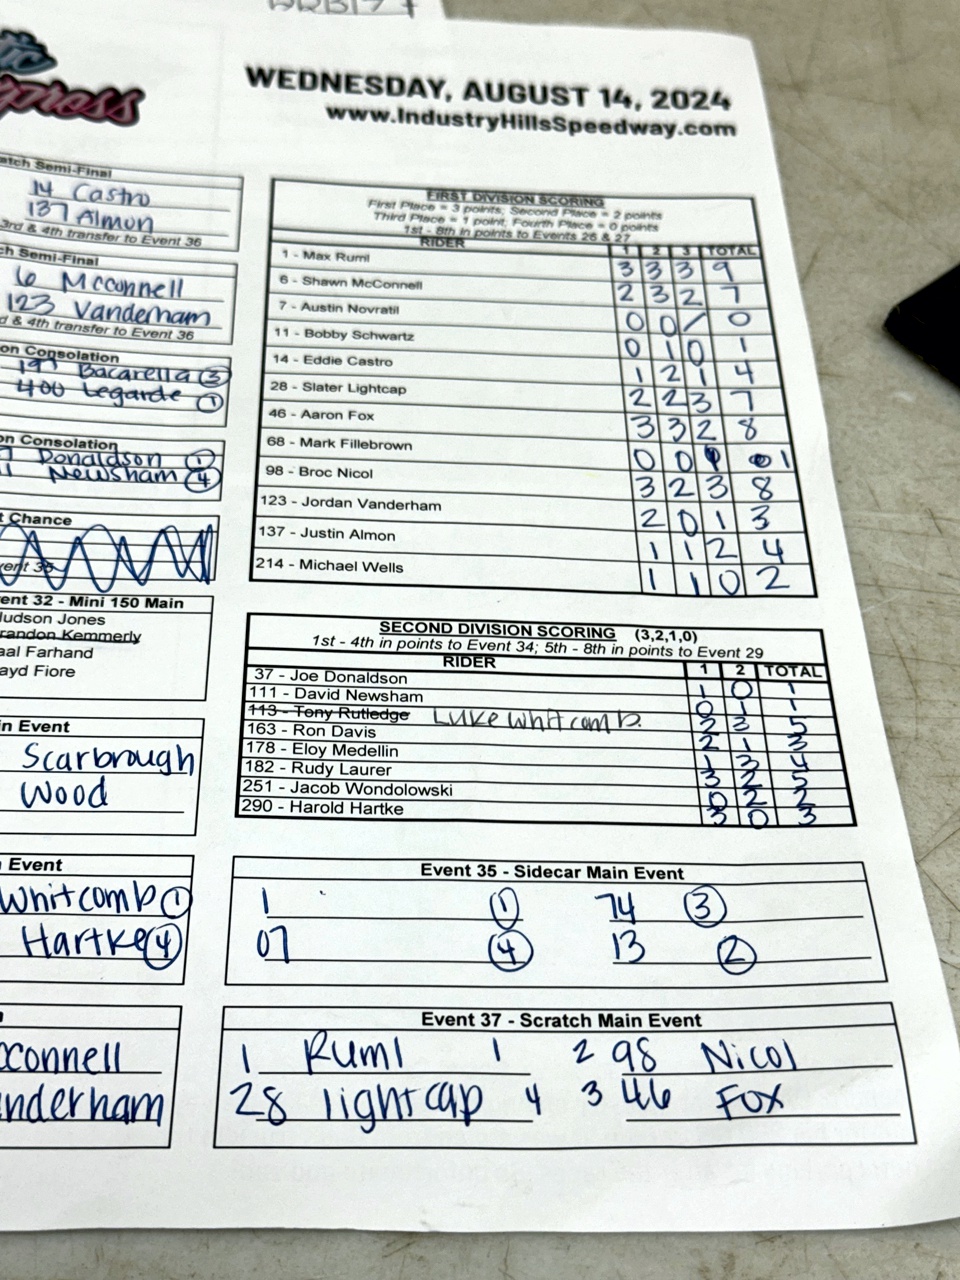 WEDNESDAY, AUGUST 14, 2024
www.IndustryHillsSpeedway.com
Semi-Final
14 Castro
137 Almon
3rd & 4th transfer to Event 36
Semi-Final
6 McConnell
123 Vanderham
& 4th transfer to Event 36
Consolation
Bacarella 3
400 Legarde 1
Consolation
Donaldson 1
Newsham 4
Chance
32 - Mini 150 Main
Jones
Kemmerly
Farhand
Fiore
Event
Scarbrough
Wood
Event
Whitcomb 1
Hartke 4
FIRST DIVISION SCORING
First Place = 3 points; Second Place = 2 points
Third Place = 1 point; Fourth Place = 0 points
1st - 8th in points to Events 26 & 27
RIDER 1 2 3 TOTAL
1 - Max Ruml 3 3 3 9
6 - Shawn McConnell 2 3 2 7
7 - Austin Novratil 0 0 / 0
11 - Bobby Schwartz 0 1 0 1
14 - Eddie Castro 1 2 1 4
28 - Slater Lightcap 2 2 3 7
46 - Aaron Fox 3 3 2 8
68 - Mark Fillebrown 0 0 1
98 - Broc Nicol 3 2 3 8
123 - Jordan Vanderham 2 0 1 3
137 - Justin Almon 1 1 2 4
214 - Michael Wells 1 1 0 2
SECOND DIVISION SCORING (3,2,1,0)
1st - 4th in points to Event 34; 5th - 8th in points to Event 29
RIDER 1 2 TOTAL
37 - Joe Donaldson 1 0 1
111 - David Newsham 0 1 1
113 - Tony Rutledge Luke Whitcomb 2 3 5
163 - Ron Davis 2 1 3
178 - Eloy Medellin 1 3 4
182 - Rudy Laurer 3 2 5
251 - Jacob Wondolowski 0 2 2
290 - Harold Hartke 3 0 3
Event 35 - Sidecar Main Event
1 1 74 3
07 4 13 2
Event 37 - Scratch Main Event
1 Ruml 1 2 98 Nicol
28 lightcap 4 3 46 Fox